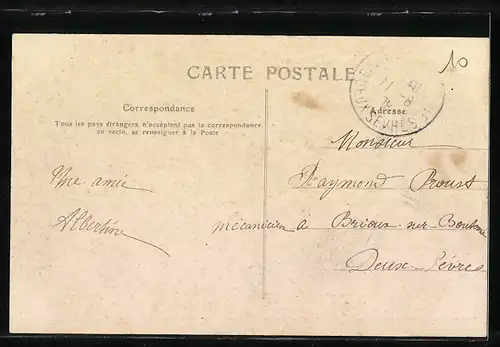 10
CARTE POSTALE
Correspondance
Tous les pays étrangers n'acceptent pas la correspondance
au recto, se renseigner à la Poste
Adresse
SÈVRES
Une amie
Albertine
Monsieur
Raymond Proust
mécanicien à Brioux-sur-Boutonne
Deux-Sèvres